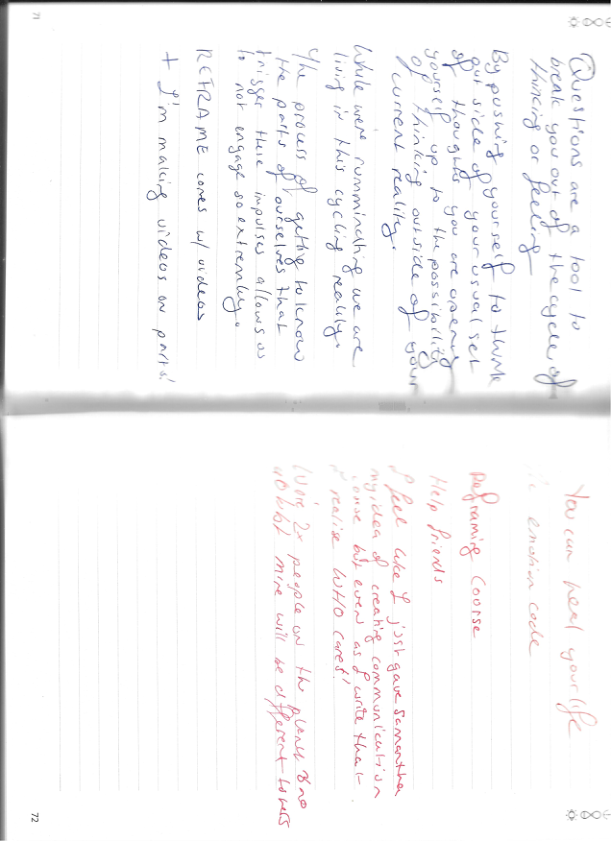 71
Questions are a tool to
break you out of the cycle of
thinking or feeling
By pushing yourself to think
out side of your usual set
of thoughts you are opening
yourself up to the possibility
of thinking outside of your
current reality.
While were ruminating we are
living in this cycling reality.
The process of getting to know
the parts of ourselves that
trigger these impulses allows us
to not engage so extremley.
REFRAME comes w/ videos
+ I'm making videos on parts!
You can heal your life
emotion code
Reframing Course
Help friends
I feel like I just gave Samantha
my idea of creating communication
course but even as I write that
I realise WHO CARES!
We're 2x people on the planet & no
doubt mine will be different to hers
72